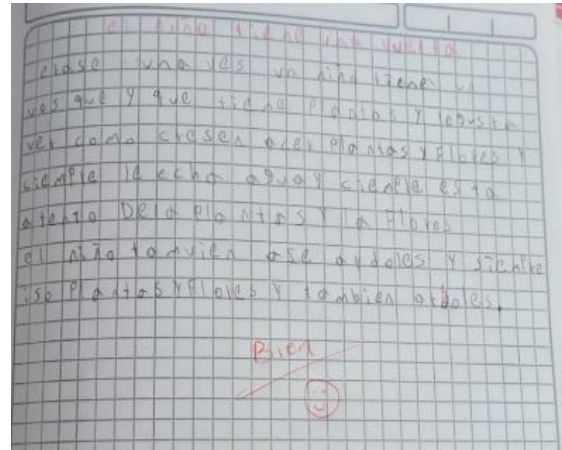 el niño tiene un vuelto
erase una ves un niño tiene un
vosque y que tiene Plantas y legusta
ver como cresen aser plantas y flores y
siempre le echa agua y siemple esta
atento DELa plantas y la Flores
el niño tamvien ase ardoles y siempre
iso Plantas y Flores y tambien arboles.
Bien